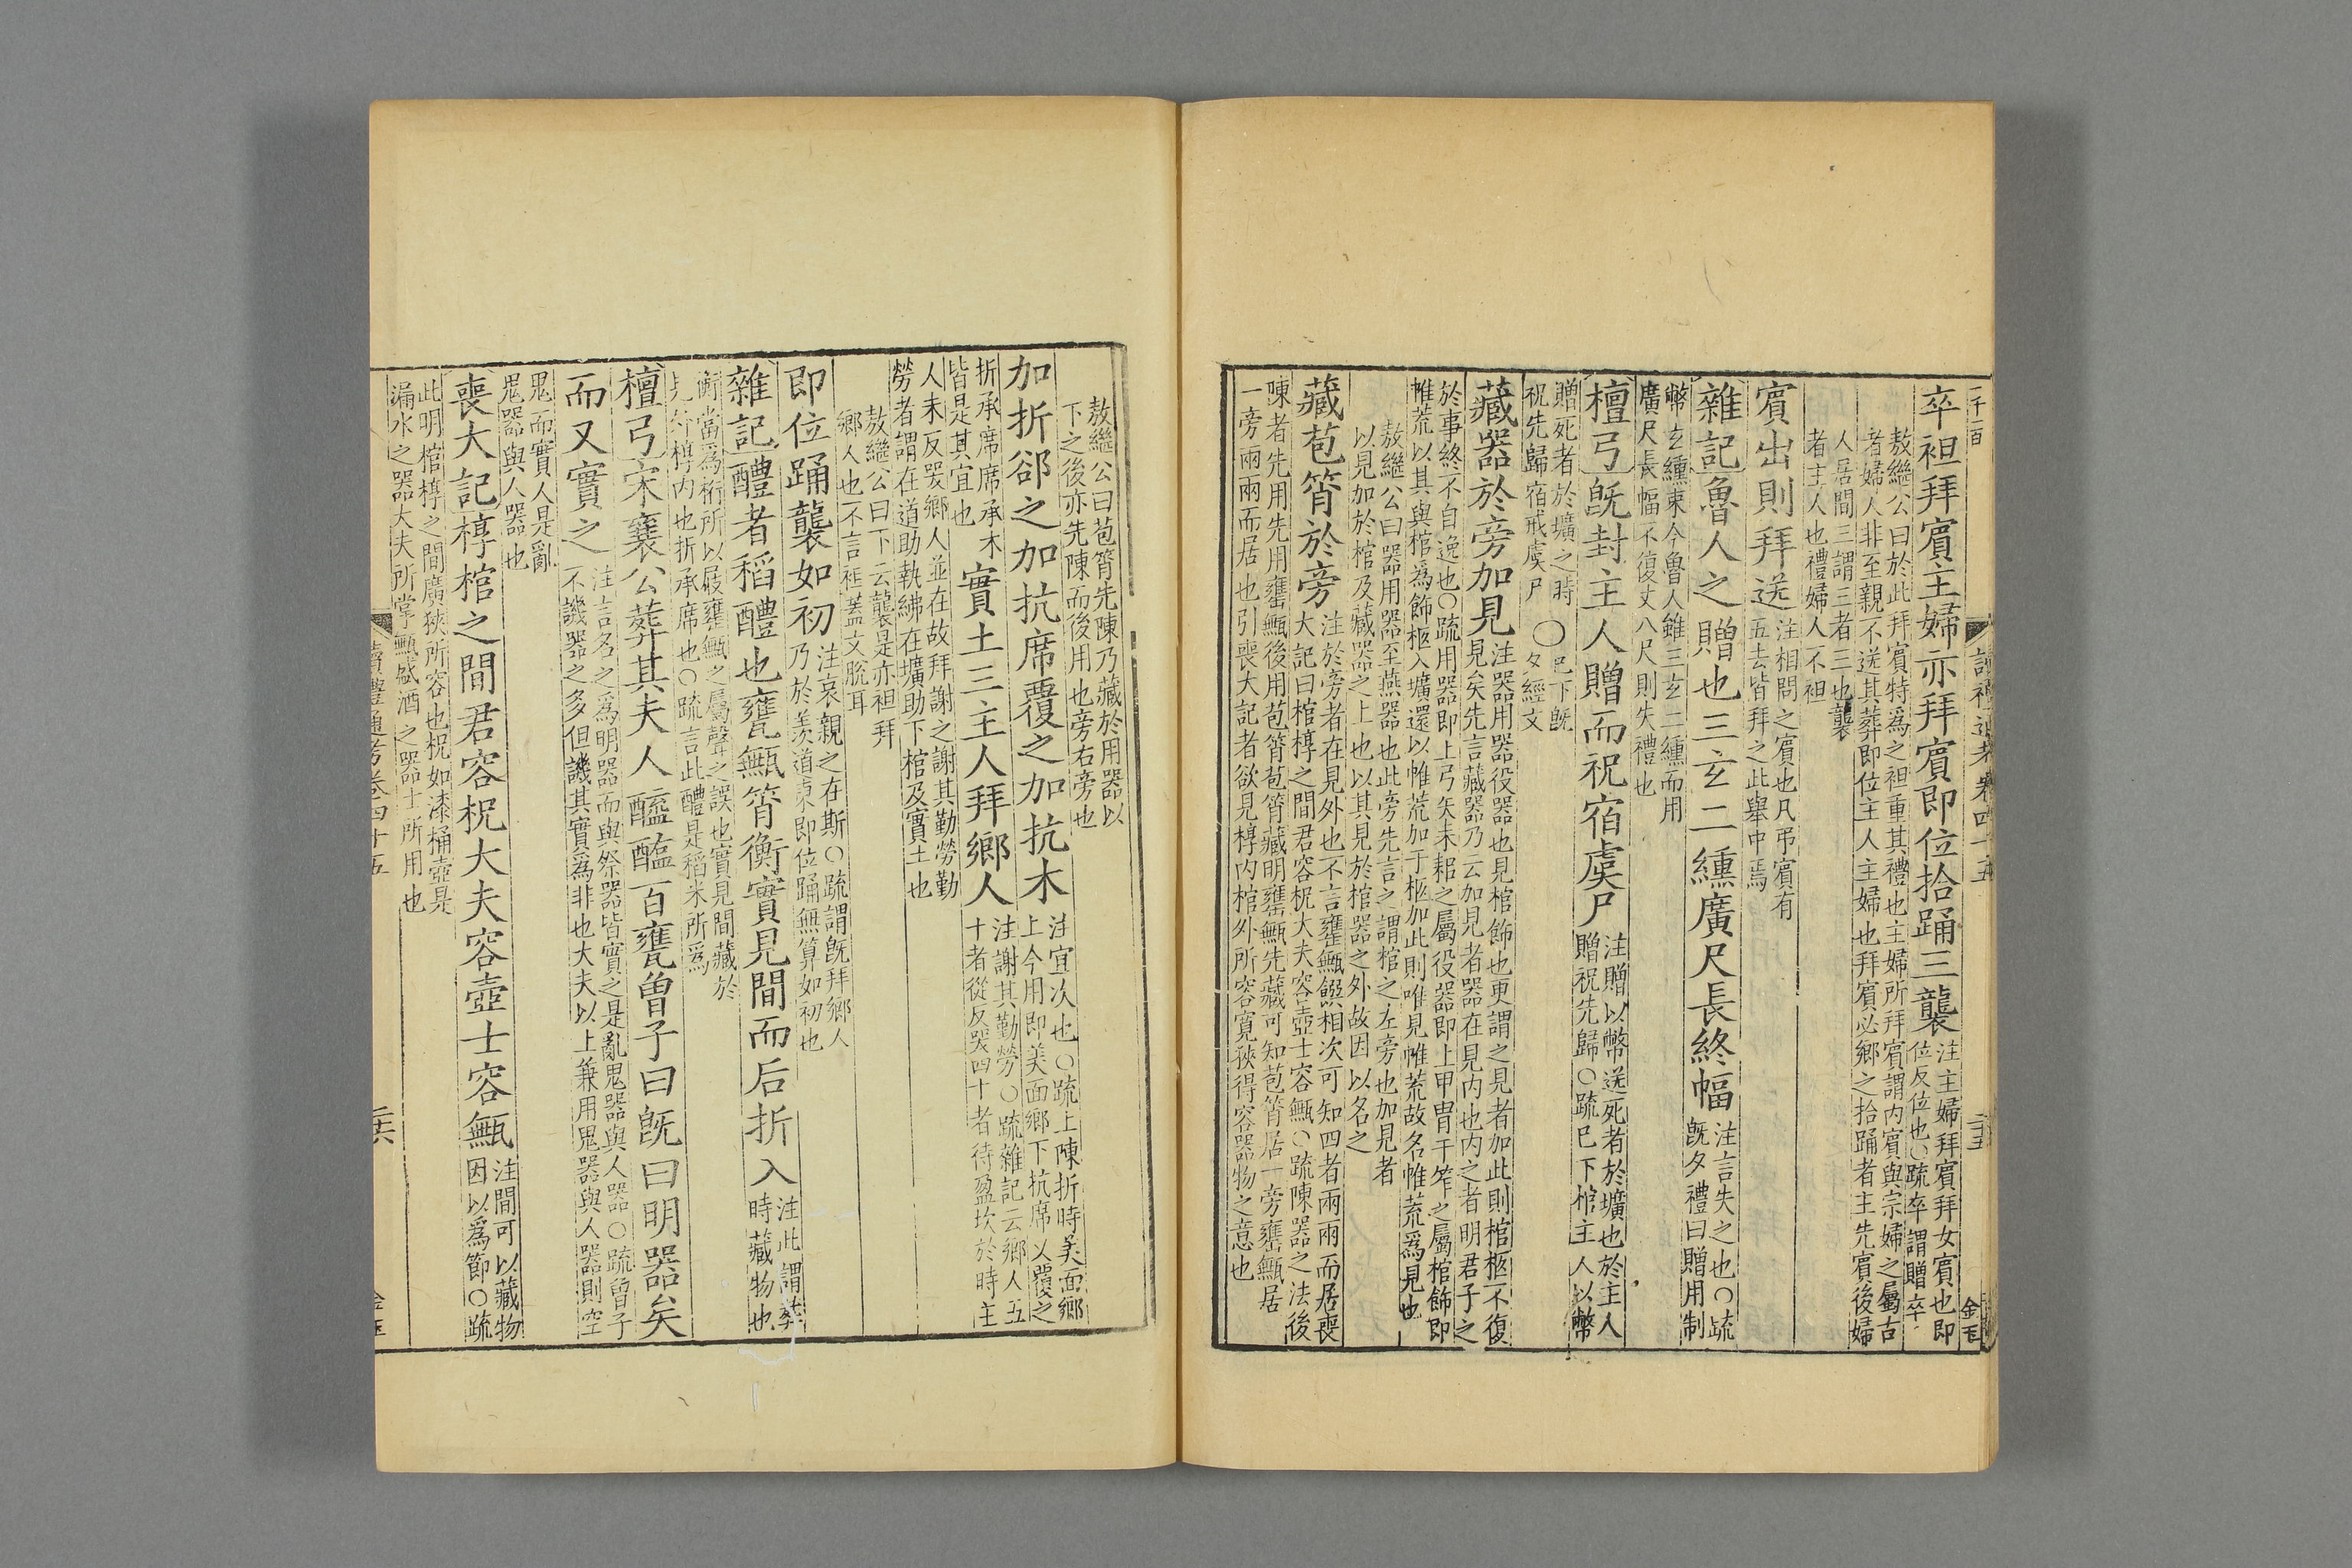 卒袒拜賓主婦亦拜賓即位拾踊三襲
注主婦拜賓拜女賓也即
位反位也○疏卒謂贈卒
敖繼公曰於此拜賓特為之袒重其禮也主婦所拜賓謂内賓與宗婦之屬古
者婦人非至親不送其葬即位主人主婦也拜賓必鄉之拾踊者主先賓後婦
人居間三謂三者三也襲
者主人也禮婦人不袒
賓出則拜送
注相問之賓也凡弔賓有
五去皆拜之此舉中焉
雜記魯人之贈也三玄二纁廣尺長終幅
注言失之也○疏
旣夕禮曰贈用制
幣玄纁束今魯人雖三玄二纁而用
廣尺長幅不復丈八尺則失禮也
檀弓旣封主人贈而祝宿虞尸
注贈以幣送死者於壙也於主人
贈祝先歸○疏已下棺主人以幣
贈死者於壙之時
祝先歸宿戒虞尸
○
已下旣
夕經文
藏器於旁加見
注器用器役器也見棺飾也更謂之見者加此則棺柩不復
見矣先言藏器乃云加見者器在見内也内之者明君子之
於事終不自逸也○疏用器即上弓矢耒耜之屬役器即上甲冑干笮之屬棺飾即
帷荒以其與棺為飾柩入壙還以帷荒加于柩加此則唯見帷荒故名帷荒為見也
敖繼公曰器用器至燕器也此旁先言之謂棺之左旁也加見者
以見加於棺及藏器之上也以其見於棺器之外故因以名之
藏苞筲於旁
注於旁者在見外也不言甕甒饌相次可知四者兩兩而居喪
大記曰棺椁之間君容柷大夫容壺士容甒○疏陳器之法後
陳者先用先用甕甒後用苞筲苞筲藏明甕甒先藏可知苞筲居一旁甕甒居
一旁兩兩而居也引喪大記者欲見椁内棺外所容寬狹得容器物之意也
敖繼公曰苞筲先陳乃藏於用器以
下之後亦先陳而後用也旁右旁也
加折郤之加抗席覆之加抗木
注宜次也○疏上陳折時美面鄉
上今用即美面鄉下抗席乂覆之
折承席席承木
皆是其宜也
實土三主人拜鄉人
注謝其勤勞○疏雜記云鄉人五
十者從反哭四十者待盈坎於時主
人未反哭鄉人並在故拜謝之謝其勤勞勤
勞者謂在道助執紼在壙助下棺及實土也
敖繼公曰下云襲是亦袒拜
鄉人也不言袒蓋文脫耳
即位踊襲如初
注哀親之在斯○疏謂旣拜鄉人
乃於羨道東即位踊無算如初也
雜記醴者稻醴也甕甒筲衡實見間而后折入
注此謂葬
時藏物也
衡當為桁所以庪甕甒之屬聲之誤也實見間藏於
見外椁内也折承席也○疏言此醴是稻米所為
檀弓宋襄公葬其夫人醯醢百甕曾子曰旣曰明器矣
而又實之
注言名之為明器而與祭器皆實之是亂鬼器與人器○疏曾子
不譏器之多但譏其實為非也大夫以上兼用鬼器與人器則空
鬼而實人是亂
鬼器與人器也
喪大記椁棺之間君容柷大夫容壺士容甒
注間可以藏物
因以為節○疏
此明棺椁之間廣狹所容也柷如漆桶壺是
漏水之器大夫所掌甒盛酒之器士所用也